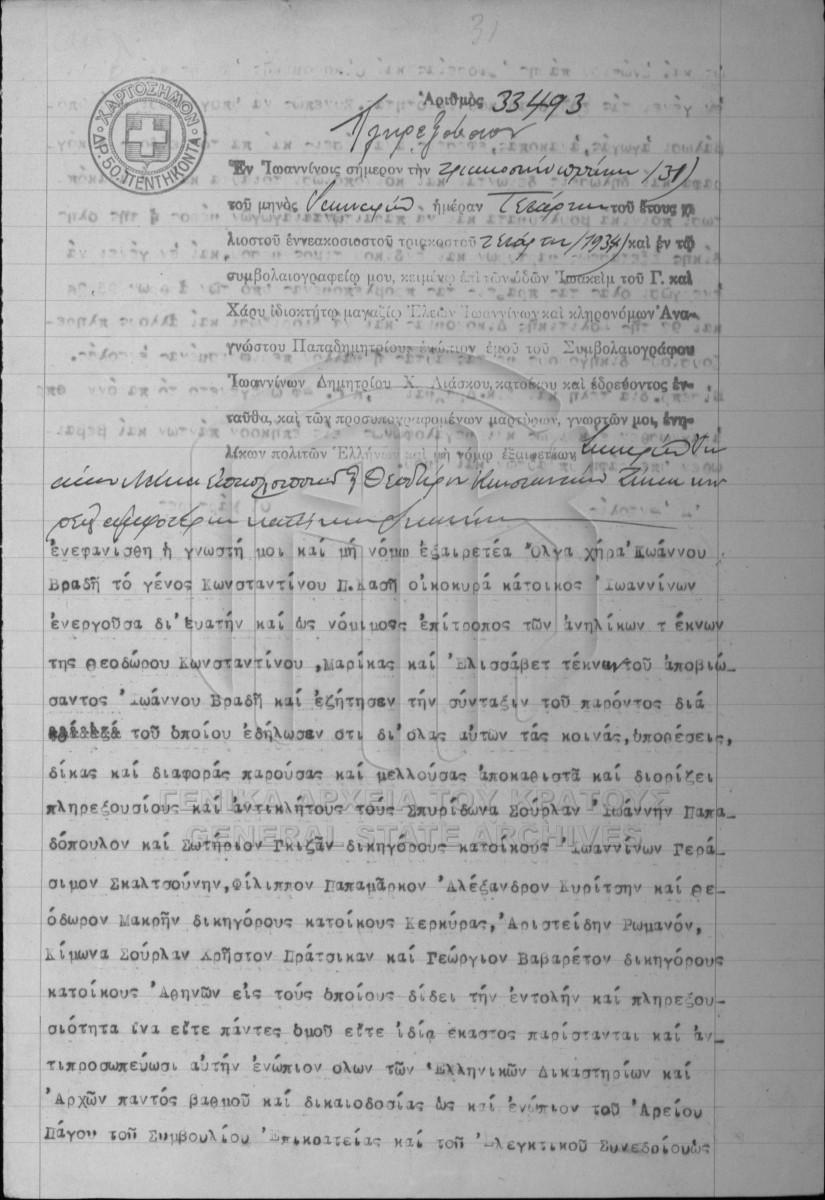 31
ΧΑΡΤΟΣΗΜΟΝ
ΔΡ. 50. ΠΕΝΤΗΚΟΝΤΑ
Ἀριθμὸς 33493
Πληρεξούσιον
Ἐν Ἰωαννίνοις σήμερον τὴν τριακοστὴν πρώτην /31/
τοῦ μηνὸς ἡμέραν Τετάρτην τοῦ ἔτους χι-
λιοστοῦ ἐννεακοσιοστοῦ τριακοστοῦ τετάρτου /1934/ καὶ ἐν τῷ
συμβολαιογραφείῳ μου, κειμένῳ ἐπὶ τῶν ὁδῶν Ἰωακεὶμ τοῦ Γ. καὶ
Χάρυ ἰδιοκτήτῳ μαγαζίῳ Ἐλεῶν Ἰωαννίνων καὶ κληρονόμων Ἀνα-
γνώστου Παπαδημητρίου ἐνώπιον ἐμοῦ τοῦ Συμβολαιογράφου
Ἰωαννίνων Δημητρίου Χ. Λιάσκου, κατοίκου καὶ ἑδρεύοντος ἐν-
ταῦθα, καὶ τῶν προσυπογραφομένων μαρτύρων, γνωστῶν μοι, ἐνη-
λίκων πολιτῶν Ἑλλήνων καὶ μὴ νόμῳ ἐξαιρετέων
Θεοδώρου Κωνσταντίνου
ἐνεφανίσθη ἡ γνωστή μοι καί μή νόμῳ ἐξαιρετέα Ὄλγα χήρα Ἰωάννου
Βραδῆ τό γένος Κωνσταντίνου Π.Κασῆ οἰκοκυρά κάτοικος Ἰωαννίνων
ἐνεργοῦσα δι'ἑυατήν καί ὡς νόμιμος ἐπίτροπος τῶν ἀνηλίκων τ έκνων
της Θεοδώρου Κωνσταντίνου ,Μαρίκας καί Ἐλισσάβετ τέκνων τοῦ ἀποβιώ-
σαντος Ἰωάννου Βραδῆ καί ἐζήτησεν τήν σύνταξιν τοῦ παρόντος διά
τοῦ ὁποίου ἐδήλωσεν οτι δι'ὅλας αὐτῶν τάς κοινάς,ὑποθέσεις,
δίκας καί διαφοράς παρούσας καί μελλούσας ἀποκαθιστᾶ καί διορίζει
πληρεξουσίους καί ἀντικλήτους τούς Σπυρίδωνα Σούρλαν Ἰωάννην Παπα-
δόπουλον καί Σωτήριον Γκιζᾶν δικηγόρους κατοίκους Ἰωαννίνων Γερά-
σιμον Σκαλτσούνην,Φίλιππον Παπαμᾶρκον Ἀλέξανδρον Κυρίτσην καί Θε-
όδωρον Μακρῆν δικηγόρους κατοίκους Κερκύρας,Ἀριστείδην Ρωμανόν,
Κίμωνα Σούρλαν Χρῆστον Πράτσικαν καί Γεώργιον Βαβαρέτον δικηγόρους
κατοίκους Ἀθηνῶν εἰς τούς ὁποίους δίδει τήν ἐντολήν καί πληρεξου-
σιότητα ἵνα εἴτε πάντες ὁμοῦ εἴτε ἰδίᾳ εκαστος παρίστανται καί ἀν-
τιπροσωπεύωσι αὐτήν ἐνώπιον ολων τῶν Ἑλληνικῶν Δικαστηρίων καί
Ἀρχῶν παντός βαθμοῦ καί δικαιοδοσίας ὡς καί ἐνώπιον τοῦ Ἀρείου
Πάγου τοῦ Συμβουλίου Ἐπικρατείας καί τοῦ Ἐλεγκτικοῦ Συνεδρίουὡς
ΓΕΝΙΚΑ ΑΡΧΕΙΑ ΤΟΥ ΚΡΑΤΟΥΣ
GENERAL STATE ARCHIVES